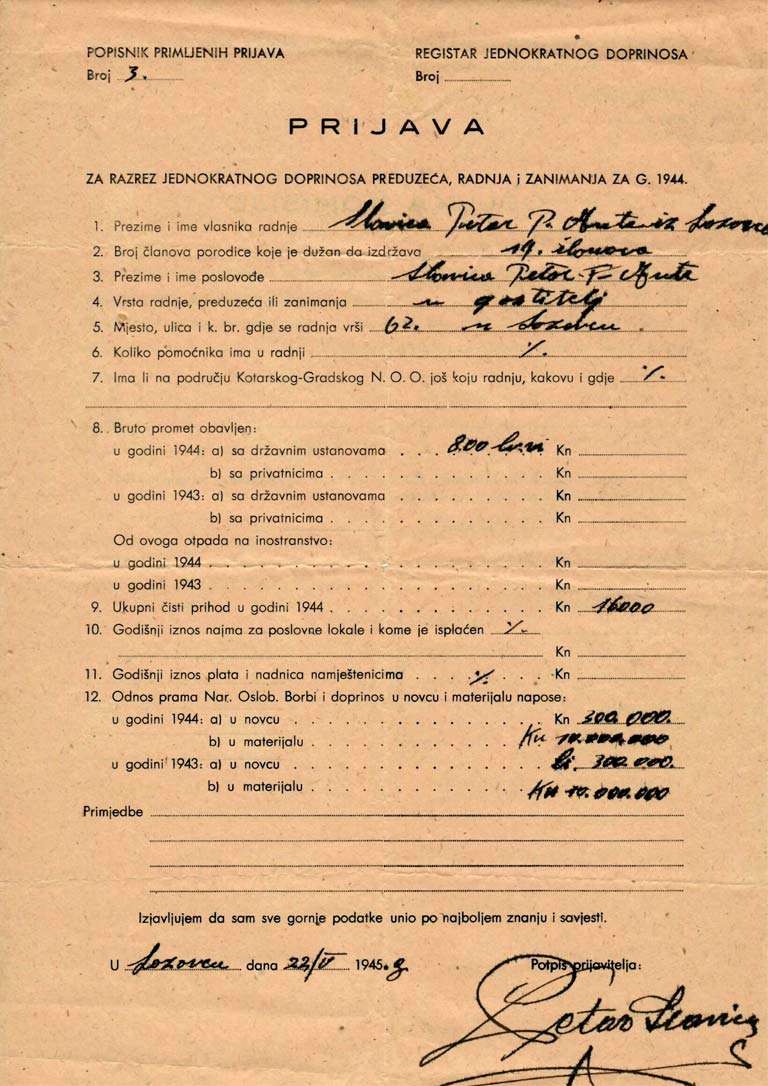 POPISNIK PRIMLJENIH PRIJAVA
Broj 3.
REGISTAR JEDNOKRATNOG DOPRINOSA
Broj
PRIJAVA
ZA RAZREZ JEDNOKRATNOG DOPRINOSA PREDUZEĆA, RADNJA i ZANIMANJA ZA G. 1944.
1. Prezime i ime vlasnika radnje Slavica Petar P. Ante iz Lozovca
2. Broj članova porodice koje je dužan da izdržava 19. članova
3. Prezime i ime poslovođe Slavica Petar P. Ante
4. Vrsta radnje, preduzeća ili zanimanja gostitelj
5. Mjesto, ulica i k. br. gdje se radnja vrši 62. u Lozovcu
6. Koliko pomoćnika ima u radnji %.
7. Ima li na području Kotarskog-Gradskog N. O. O. još koju radnju, kakovu i gdje %.
8. Bruto promet obavljen:
u godini 1944: a) sa državnim ustanovama . . . 800 Kn
b) sa privatnicima . . . . . . . . . . Kn
u godini 1943: a) sa državnim ustanovama . . . . . . . Kn
b) sa privatnicima . . . . . . . . . . Kn
Od ovoga otpada na inostranstvo:
u godini 1944 . . . . . . . . . . . . . . . Kn
u godini 1943 . . . . . . . . . . . . . . . Kn
9. Ukupni čisti prihod u godini 1944 . . . . . . . . . . Kn 16000
10. Godišnji iznos najma za poslovne lokale i kome je isplaćen %.
Kn
11. Godišnji iznos plata i nadnica namještenicima . . . . %. . . Kn
12. Odnos prama Nar. Oslob. Borbi i doprinos u novcu i materijalu napose:
u godini 1944: a) u novcu . . . . . . . . . . . . Kn 300.000.
b) u materijalu . . . . . . . . . . Kn 10.000.000
u godini 1943: a) u novcu . . . . . . . . . . . . 300.000.
b) u materijalu . . . . . . . . . . Kn 10.000.000
Primjedbe
Izjavljujem da sam sve gornje podatke unio po najboljem znanju i savjesti.
U Lozovcu dana 22/V 1945. g
Potpis prijavitelja:
Petar Slavica